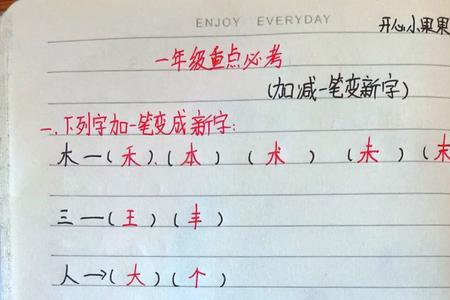 ENJOY EVERYDAY
开心小果果
一年级重点必考
(加减一笔变新字)
一、下列字加一笔变成新字:
木一(禾)、(本) (术) (未) (末
三一(王)(丰)
人→(大)(个)